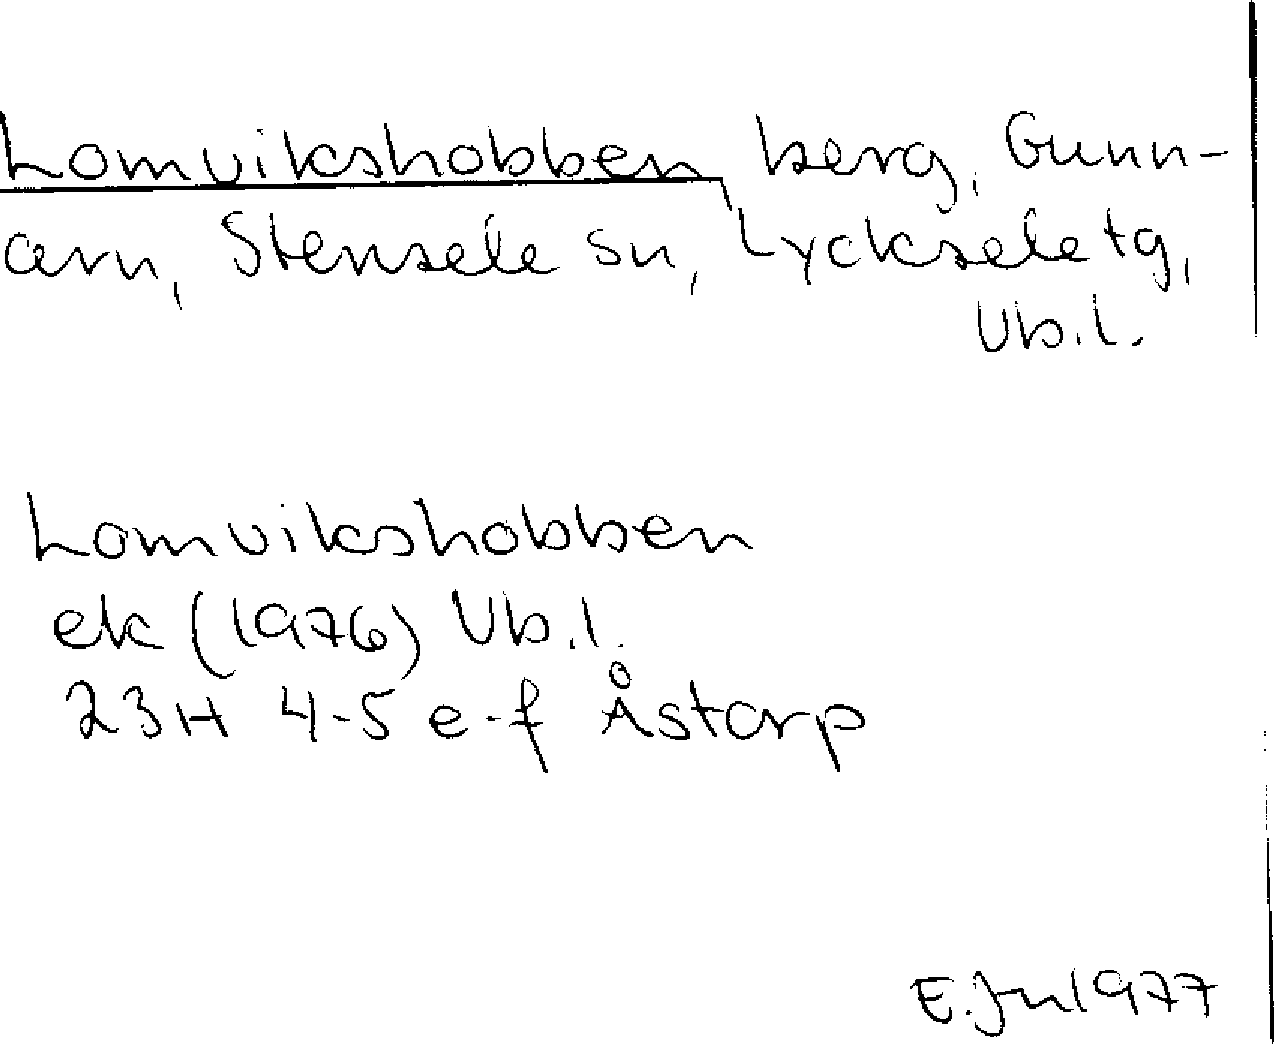 Lomvikshobben berg, Gunn-
arn, Stensele sn, Lycksele tg,
Vb.l.
Lomvikshobben
ek (1976) Vb.l.
23H 4-5 e-f Åstorp
1977